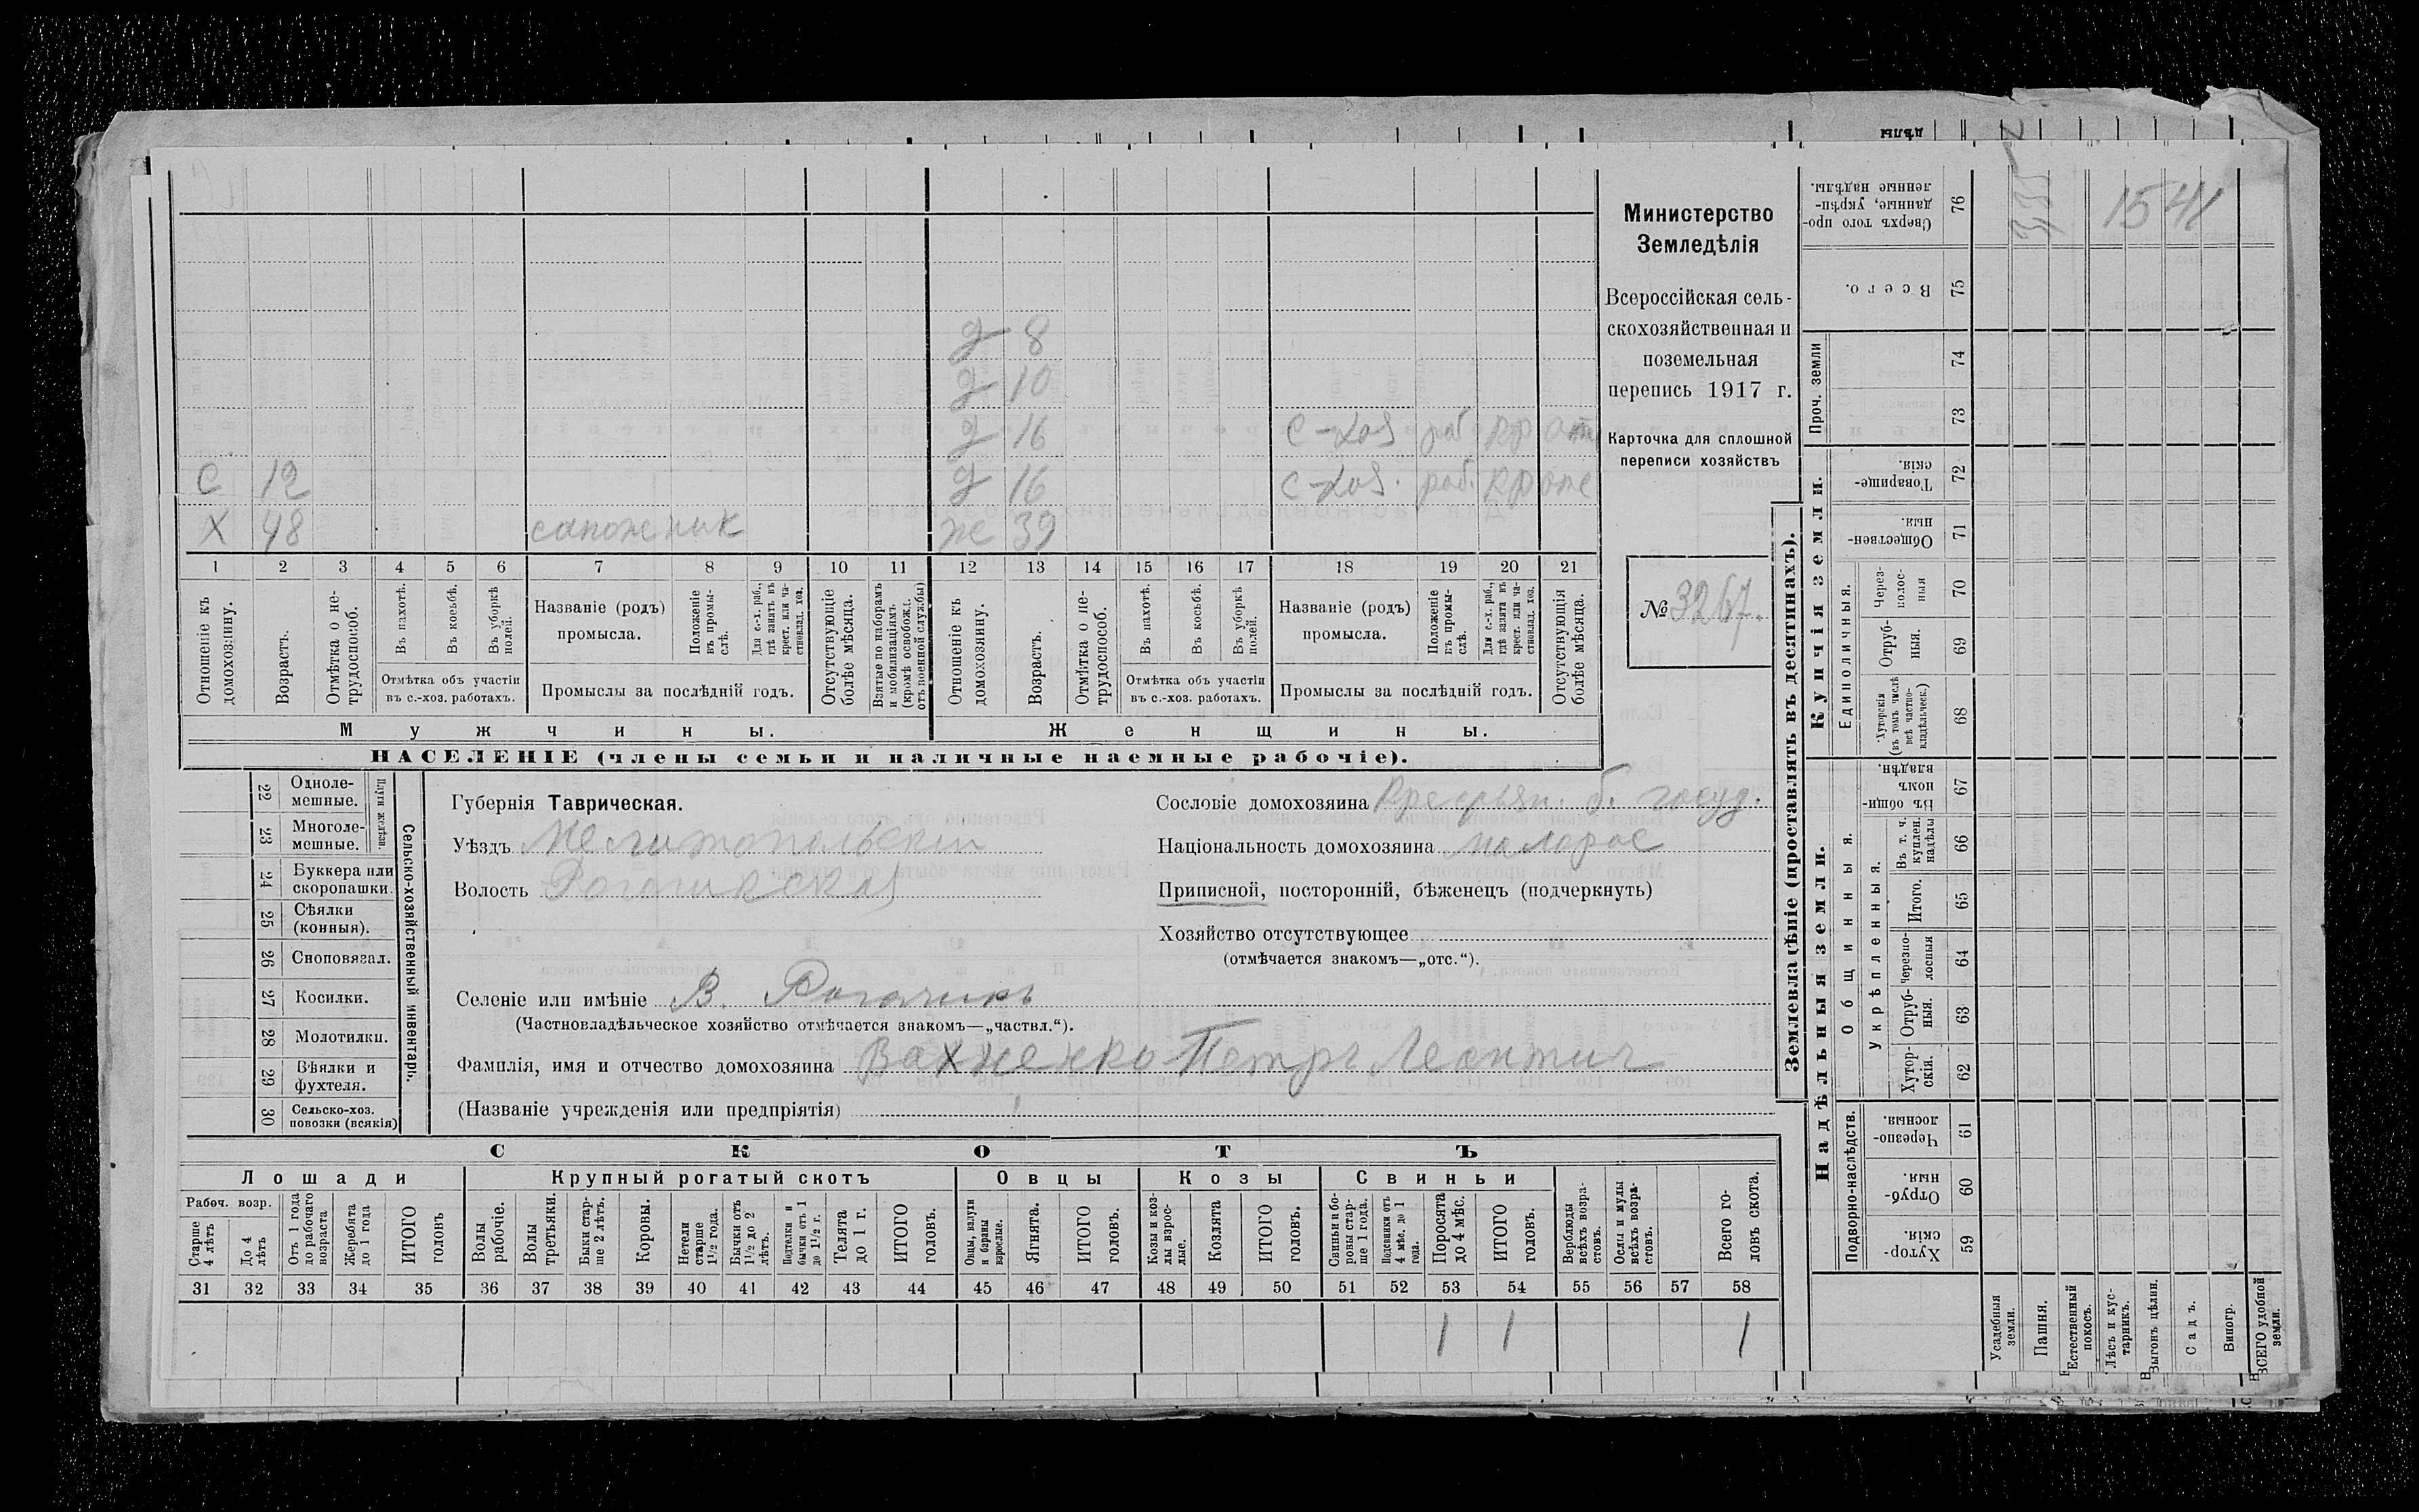 дѣлы
Министерство
Земледѣлія
Всероссійская сель-
скохозяйственная и
поземельная
перепись 1917 г.
Карточка для сплошной
переписи хозяйствъ
№ 3267.
д 8
д 10
д 16 с-хоз раб кр от
С 12 д 16 с-хоз. раб. кр
Х 48 сапожник ж 39
1 2 3 4 5 6 7 8 9 10 11 12 13 14 15 16 17 18 19 20 21
Отношеніе къ домохозяину.
Возрастъ.
Отмѣтка о не-трудоспособ.
Въ пахотѣ.
Въ косьбѣ.
Въ уборкѣ полей.
Отмѣтка объ участіи въ с.-хоз. работахъ.
Названіе (родъ) промысла.
Положеніе въ промы-слѣ.
Для с.-х. раб., гдѣ занятъ въ крест. или ча-стновлад. хоз.
Промыслы за послѣдній годъ.
Отсутствующіе болѣе мѣсяца.
Взятые по наборамъ и мобилизаціямъ (кромѣ освобожд. отъ военной службы)
Отношеніе къ домохозяину.
Возрастъ.
Отмѣтка о не-трудоспособ.
Въ пахотѣ.
Въ косьбѣ.
Въ уборкѣ полей.
Отмѣтка объ участіи въ с.-хоз. работахъ.
Названіе (родъ) промысла.
Положеніе въ промы-слѣ.
Для с.-х. раб., гдѣ занята въ крест. или ча-стновлад. хоз.
Промыслы за послѣдній годъ.
Отсутствующія болѣе мѣсяца.
Мужчины. Женщины.
НАСЕЛЕНІЕ (члены семьи и наличные наемные рабочіе).
22 Одноле-мешные.
23 Многоле-мешные.
Плуги желѣзн.
24 Буккера или скоропашки.
25 Сѣялки (конныя).
26 Сноповязал.
27 Косилки.
28 Молотилки.
29 Вѣялки и фухтеля.
30 Сельско-хоз. повозки (всякія)
Сельско-хозяйственный инвентарь.
Губернія Таврическая.
Уѣздъ Мелитопольский
Волость Рогачикская
Сословіе домохозяина Крестьян. б. госуд.
Національность домохозяина малорос
Приписной, посторонній, бѣженецъ (подчеркнуть)
Хозяйство отсутствующее
(отмѣчается знакомъ—„отс.“).
Селеніе или имѣніе В. Рогачикъ
(Частновладѣльческое хозяйство отмѣчается знакомъ—„частвл.“).
Фамилія, имя и отчество домохозяина Вахненко Петръ Леонтич
(Названіе учрежденія или предпріятія)
СКОТЪ
Лошади Крупный рогатый скотъ Овцы Козы Свиньи
Рабоч. возр.
Старше 4 лѣтъ
До 4 лѣтъ
Отъ 1 года до рабочаго возраста
Жеребята до 1 года
ИТОГО головъ
Волы рабочіе.
Волы третьяки.
Быки стар-ше 2 лѣтъ.
Коровы.
Нетели старше 1 1/2 года.
Бычки отъ 1 1/2 до 2 лѣтъ.
Подтелки и бычки отъ 1 до 1 1/2 г.
Телята до 1 г.
ИТОГО головъ.
Овцы, валухи и бараны взрослые.
Ягнята.
ИТОГО головъ.
Козы и коз-лы взрос-лые.
Козлята
ИТОГО головъ.
Свиньи и бо-ровы стар-ше 1 года.
Подсвинки отъ 4 мѣс. до 1 года.
Поросята до 4 мѣс.
ИТОГО головъ.
Верблюды всѣхъ возра-стовъ.
Ослы и мулы всѣхъ возра-стовъ.
Всего го-ловъ скота.
31 32 33 34 35 36 37 38 39 40 41 42 43 44 45 46 47 48 49 50 51 52 53 54 55 56 57 58
1 1 1
Землевладѣніе (проставлять въ десятинахъ).
Сверхъ того про-данные, укрѣп-ленные надѣлы. 76
1541
Всего. 75
Проч. земли
74
73
Купчія земли.
Товарище-скія. 72
Обществен-ныя. 71
Единоличныя.
Через-полос-ныя 70
Отруб-ныя. 69
Хуторскія (въ томъ числѣ всѣ частно-владѣльческ.) 68
Надѣльныя земли.
Общинныя.
Въ общи-номъ владѣн. 67
Укрѣпленныя.
Въ т. ч. куплен. надѣлы 66
Итого. 65
Черезпо-лосныя 64
Отруб-ныя. 63
Хутор-скія. 62
Подворно-наслѣдств.
Черезпо-лосныя. 61
Отруб-ныя. 60
Хутор-скія. 59
Усадебныя земли.
Пашня.
Естественный покосъ.
Лѣсъ и кус-тарникъ.
Выгонъ цѣлин.
Садъ.
Виногр.
ВСЕГО удобной земли.